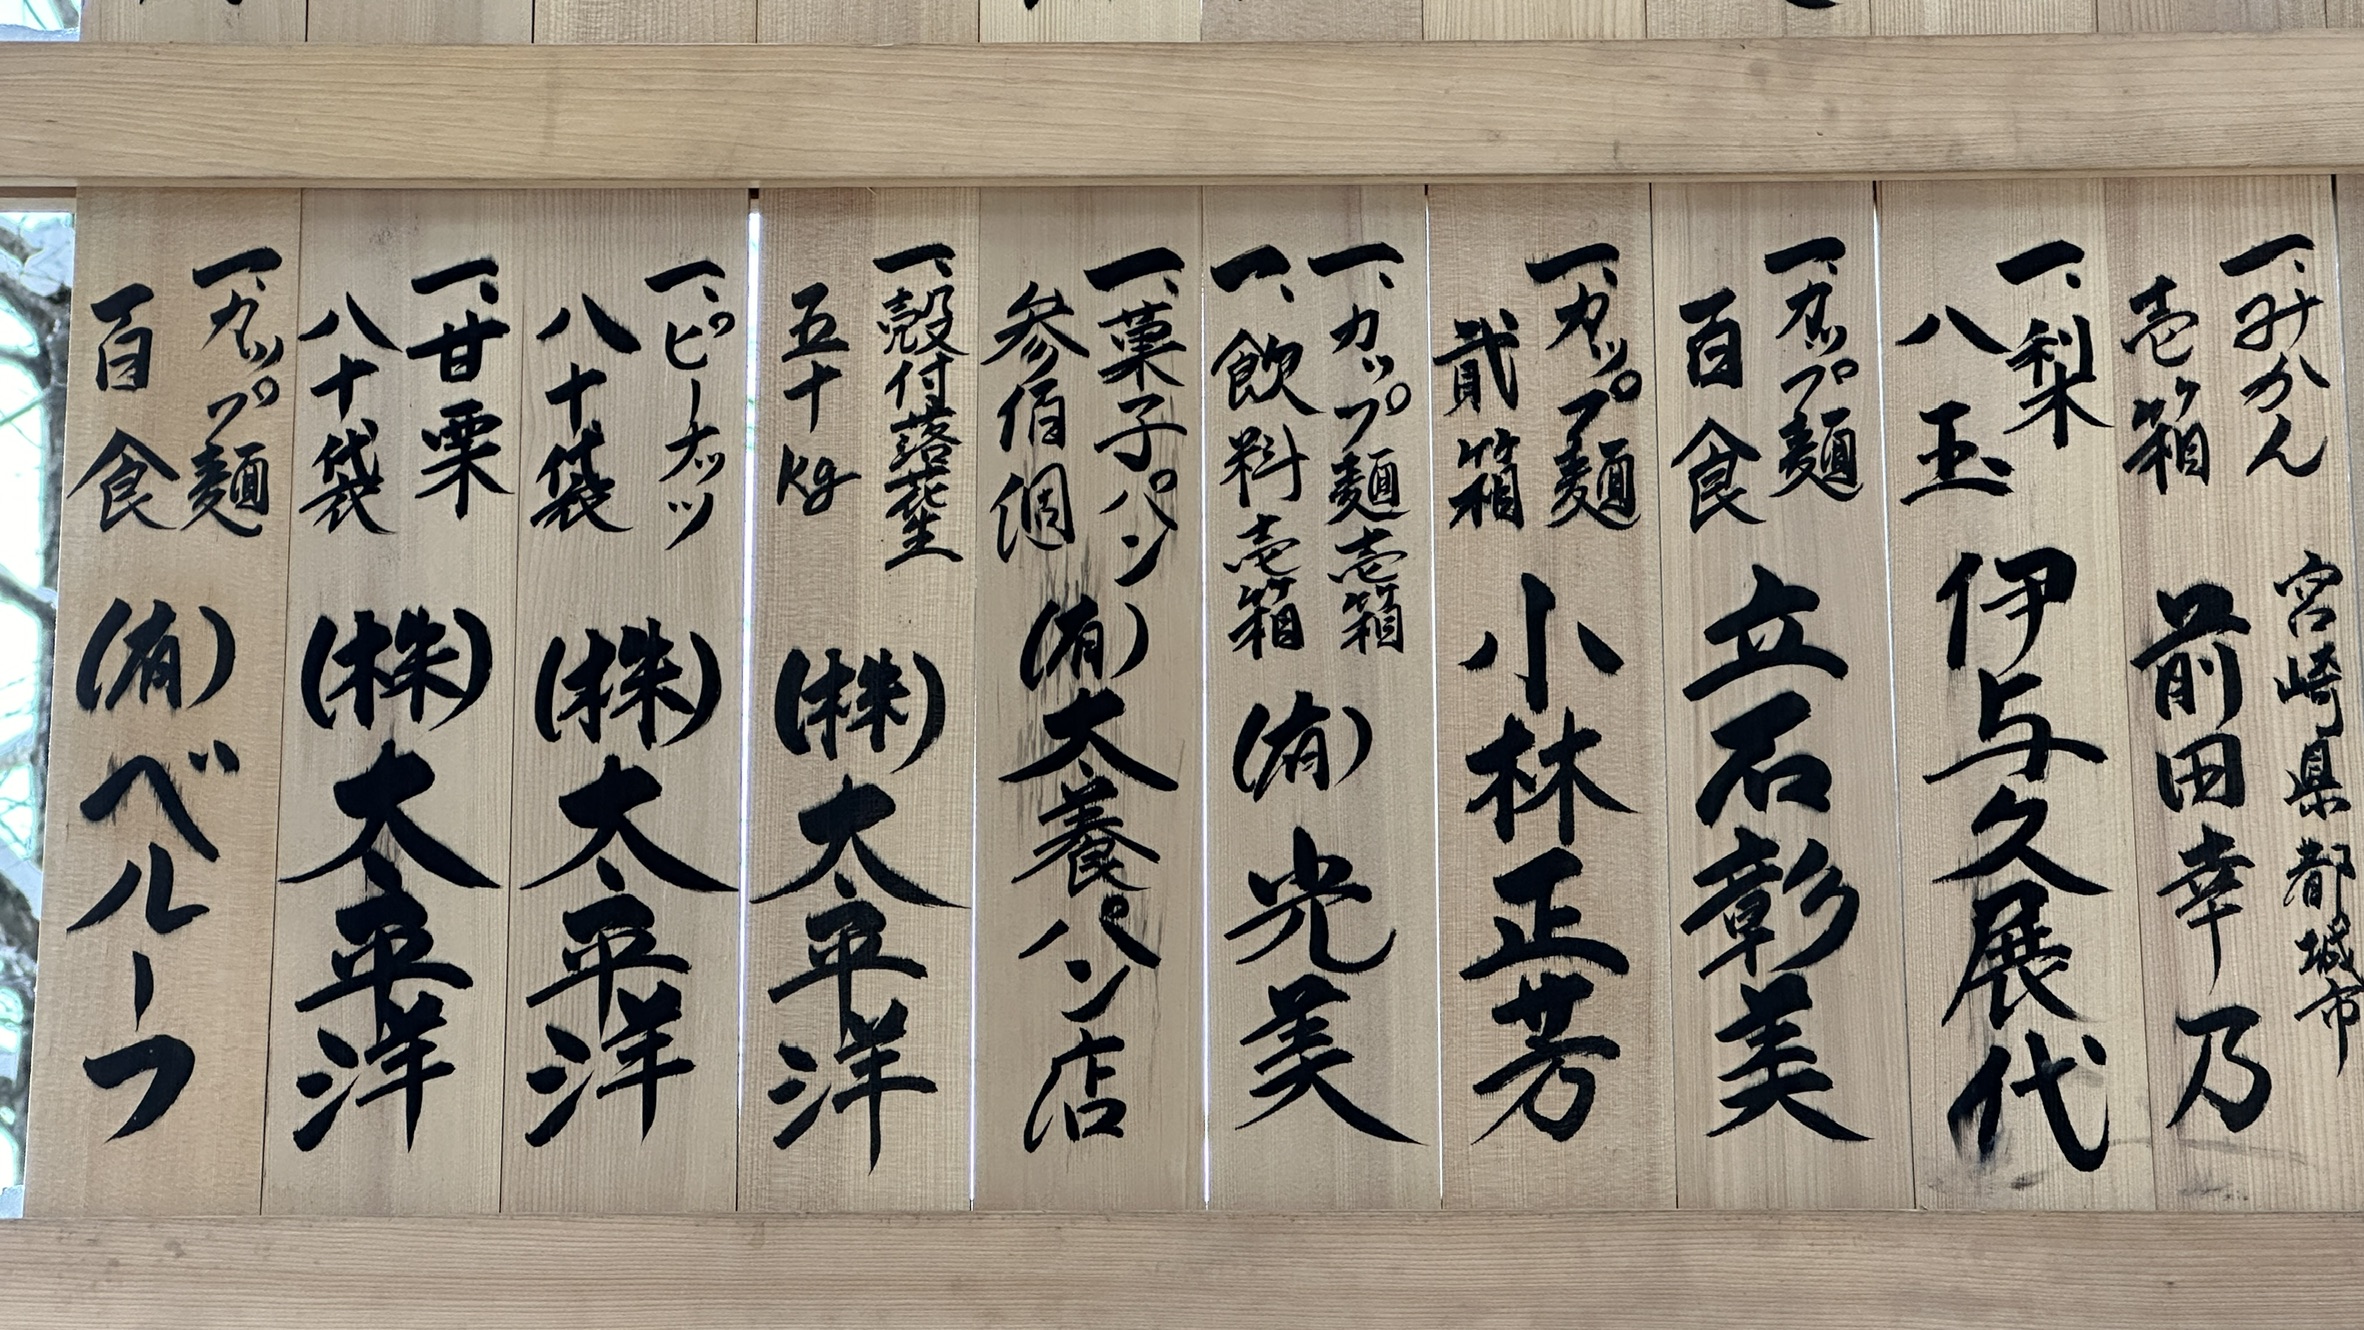 一、みかん
壱ヶ箱
宮崎県都城市
前田幸乃
一、梨
八玉
伊与久展代
一、カップ麺
百食
立石彰美
一、カップ麺
貮箱
小林正芳
一、カップ麺壱箱
一、飲料壱箱
(有)光美
一、菓子パン
参佰個
(有)太養パン店
一、殻付落花生
五十kg
(株)太平洋
一、ピーナッツ
八十袋
(株)太平洋
一、甘栗
八十袋
(株)太平洋
一、カップ麺
百食
(有)ベルーフ